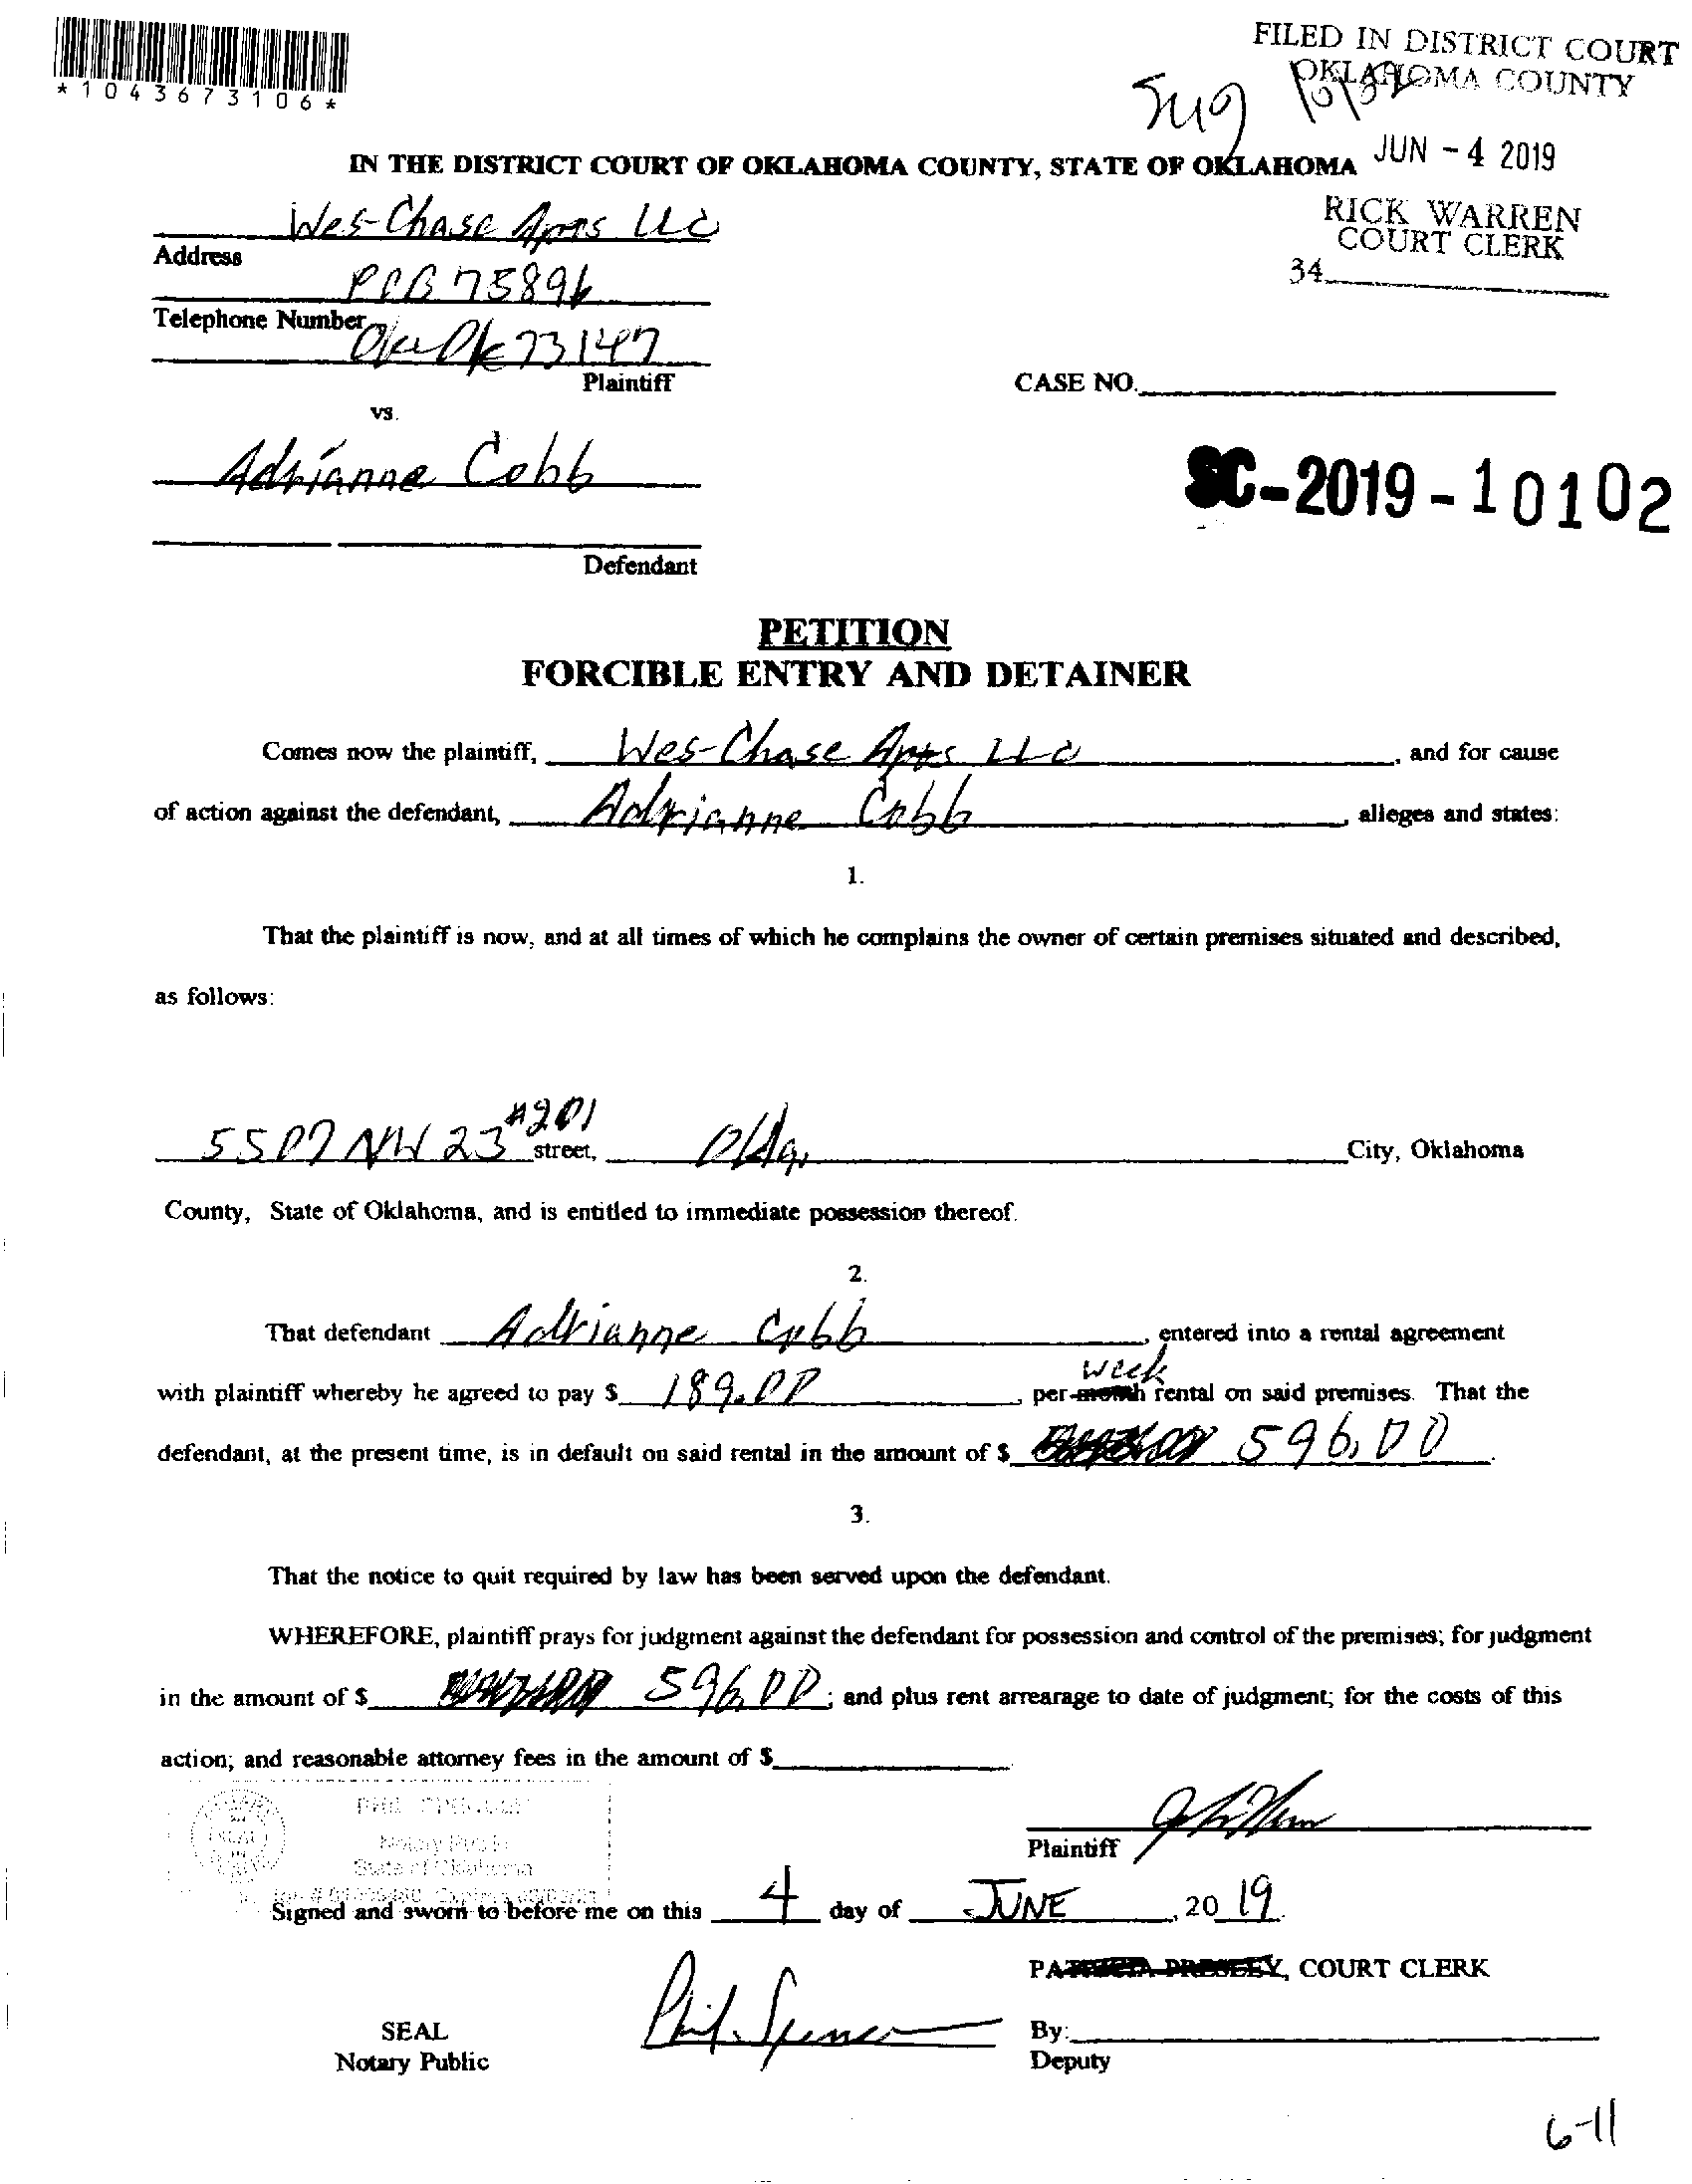 *1043673106*
FILED IN DISTRICT COURT
OKLAHOMA COUNTY
JUN - 4 2019
IN THE DISTRICT COURT OF OKLAHOMA COUNTY, STATE OF OKLAHOMA
RICK WARREN
COURT CLERK
34
Wes-Chase Apts LLC
Address
POB 75896
Telephone Number
Okc Ok 73147
Plaintiff
CASE NO.
vs.
Adrianne Cobb
SC-2019-10102
Defendant
PETITION
FORCIBLE ENTRY AND DETAINER
Comes now the plaintiff, Wes-Chase Apts LLC, and for cause
of action against the defendant, Adrianne Cobb, alleges and states:
1.
That the plaintiff is now, and at all times of which he complains the owner of certain premises situated and described,
as follows:
5507 NW 23 #201 street, Okla. City, Oklahoma
County, State of Oklahoma, and is entitled to immediate possession thereof.
2.
That defendant Adrianne Cobb, entered into a rental agreement
with plaintiff whereby he agreed to pay $ 189.00, per month week rental on said premises. That the
defendant, at the present time, is in default on said rental in the amount of $ 596.00.
3.
That the notice to quit required by law has been served upon the defendant.
WHEREFORE, plaintiff prays for judgment against the defendant for possession and control of the premises; for judgment
in the amount of $ 596.00; and plus rent arrearage to date of judgment; for the costs of this
action; and reasonable attorney fees in the amount of $
Notary Public
State of Oklahoma
Plaintiff
Signed and sworn to before me on this 4 day of JUNE, 20 19.
PATRICIA PRESLEY, COURT CLERK
Phil Spencer
SEAL
By:
Notary Public
Deputy
6-11